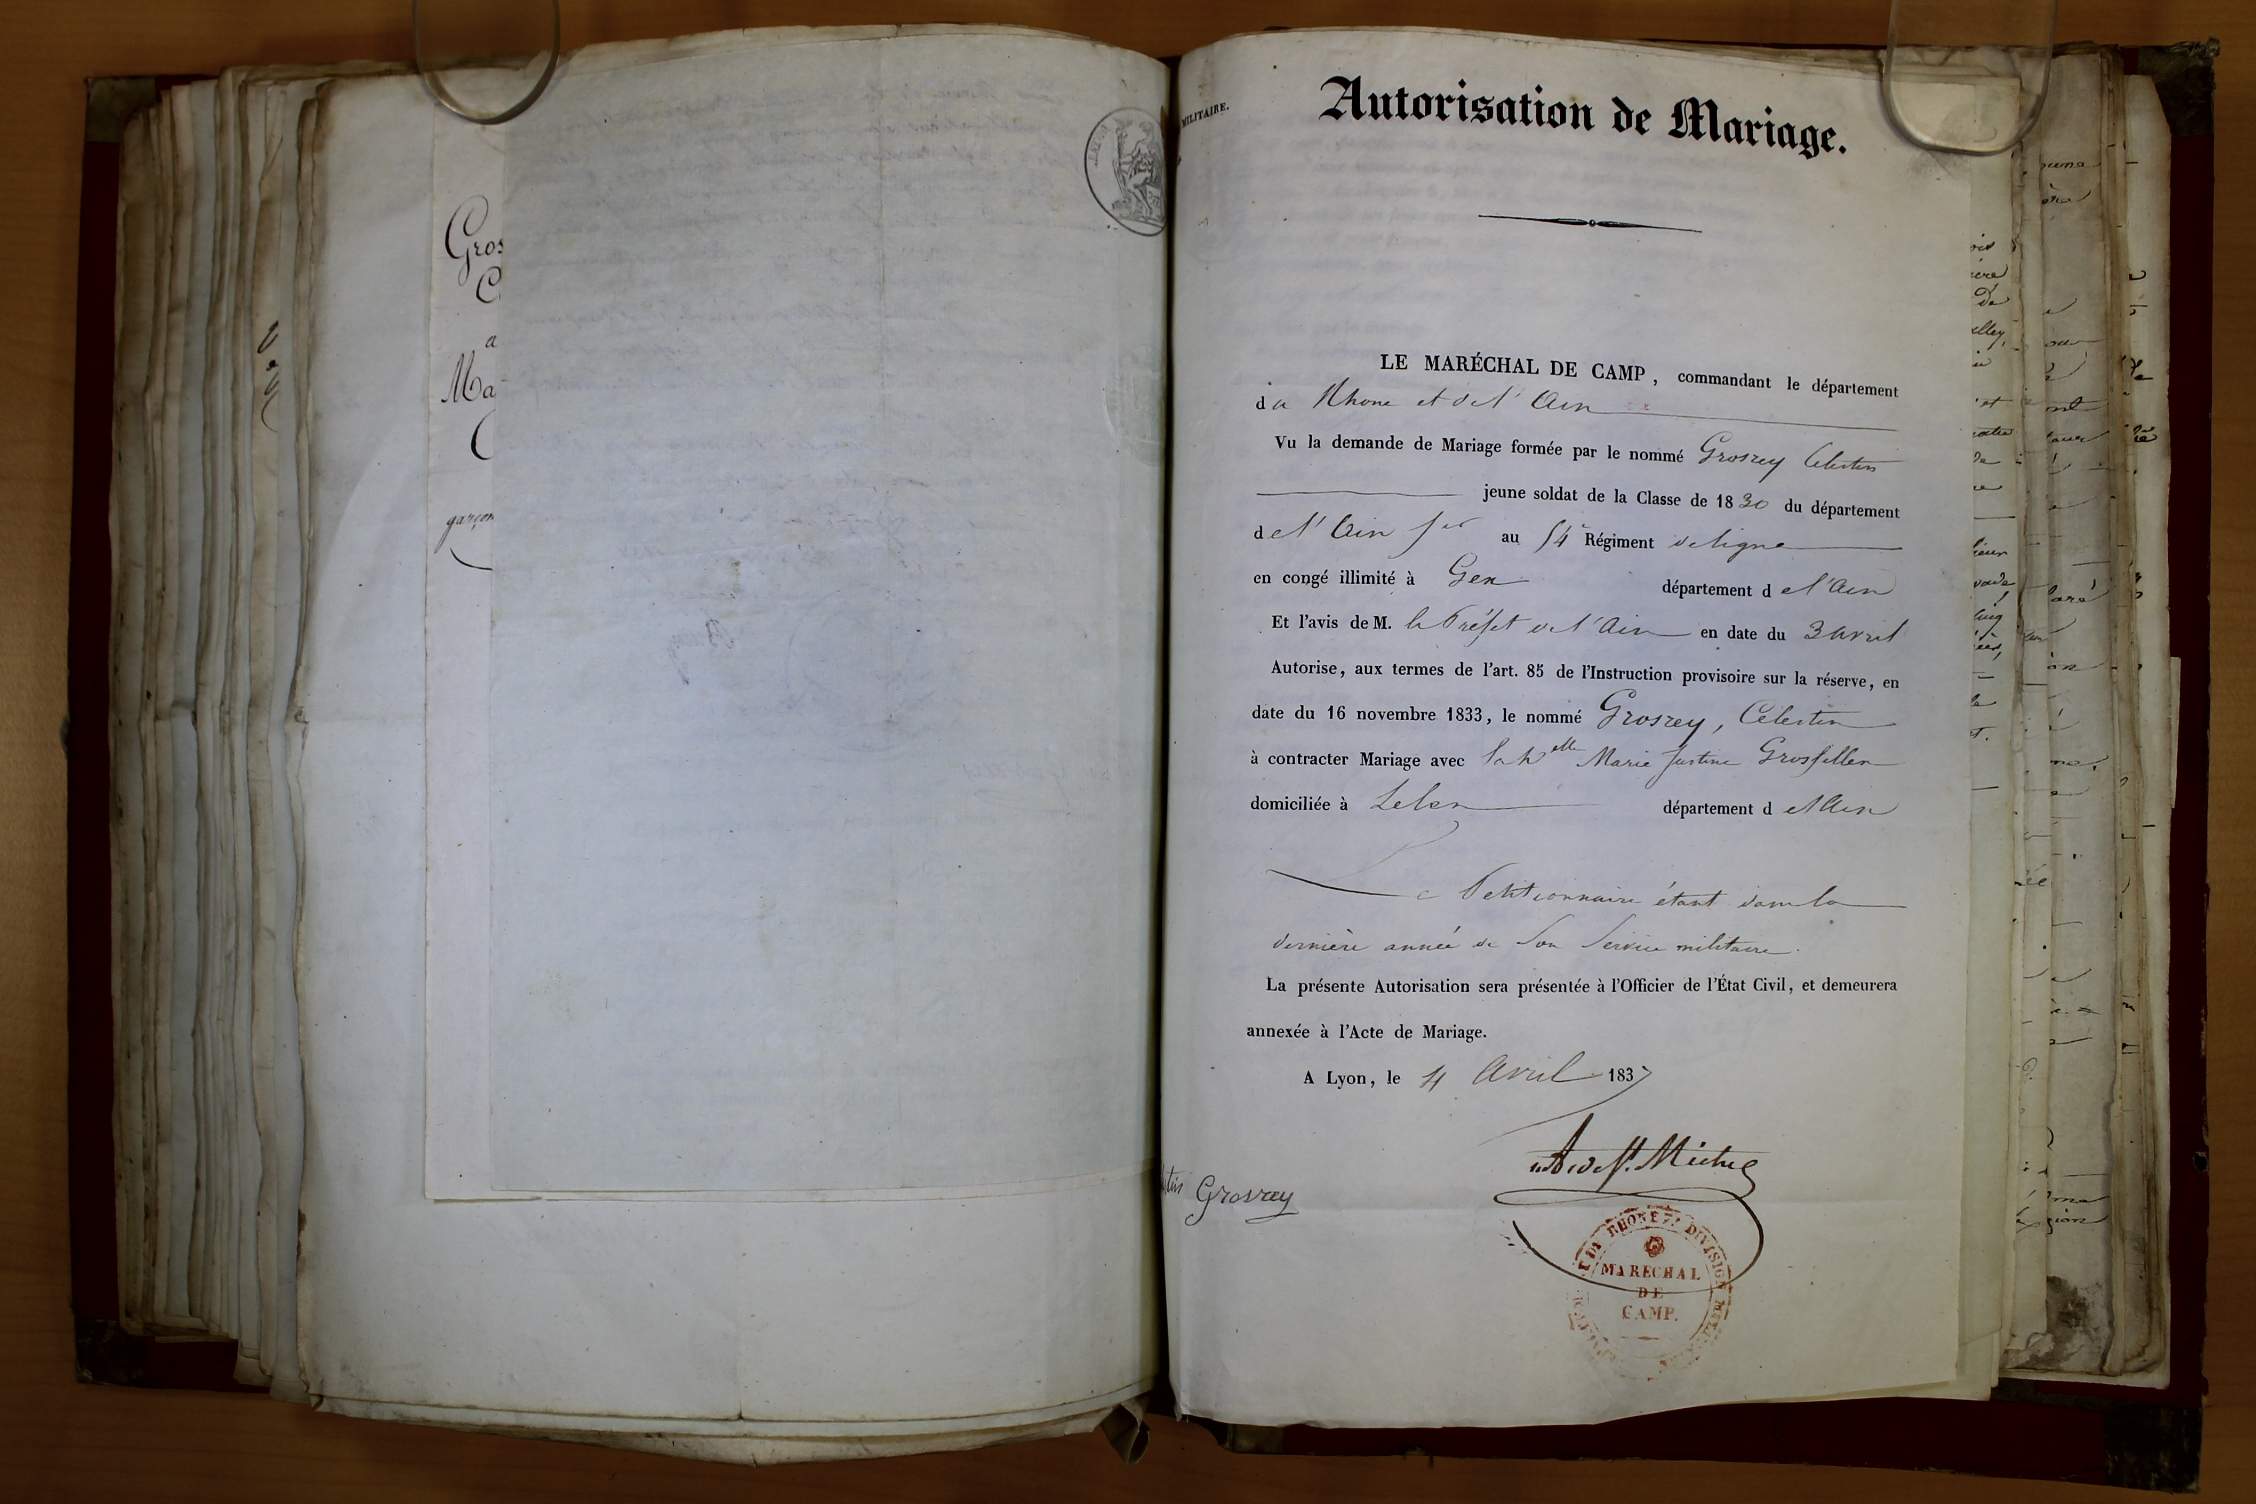 Gros
C
a
Ma
C
garçon
MILITAIRE.
Autorisation de Mariage.
LE MARÉCHAL DE CAMP, commandant le département
du Rhone et de l'Ain
Vu la demande de Mariage formée par le nommé Grosrey Celestin
jeune soldat de la Classe de 1830 du département
de l'Ain au 54e Régiment de ligne
en congé illimité à Gex département de l'Ain
Et l'avis de M. le Préfet de l'Ain en date du 3 avril
Autorise, aux termes de l'art. 85 de l'Instruction provisoire sur la réserve, en
date du 16 novembre 1833, le nommé Grosrey, Célestin
à contracter Mariage avec la Delle Marie Justine Grosfillex
domiciliée à Lelex département de l'Ain
Le Petitionnaire étant dans la
dernière année de son Service militaire.
La présente Autorisation sera présentée à l'Officier de l'État Civil, et demeurera
annexée à l'Acte de Mariage.
A Lyon, le 4 Avril 1837
tin Grosrey
DU RHONE 7e DIVISION
MARECHAL
DE
CAMP.